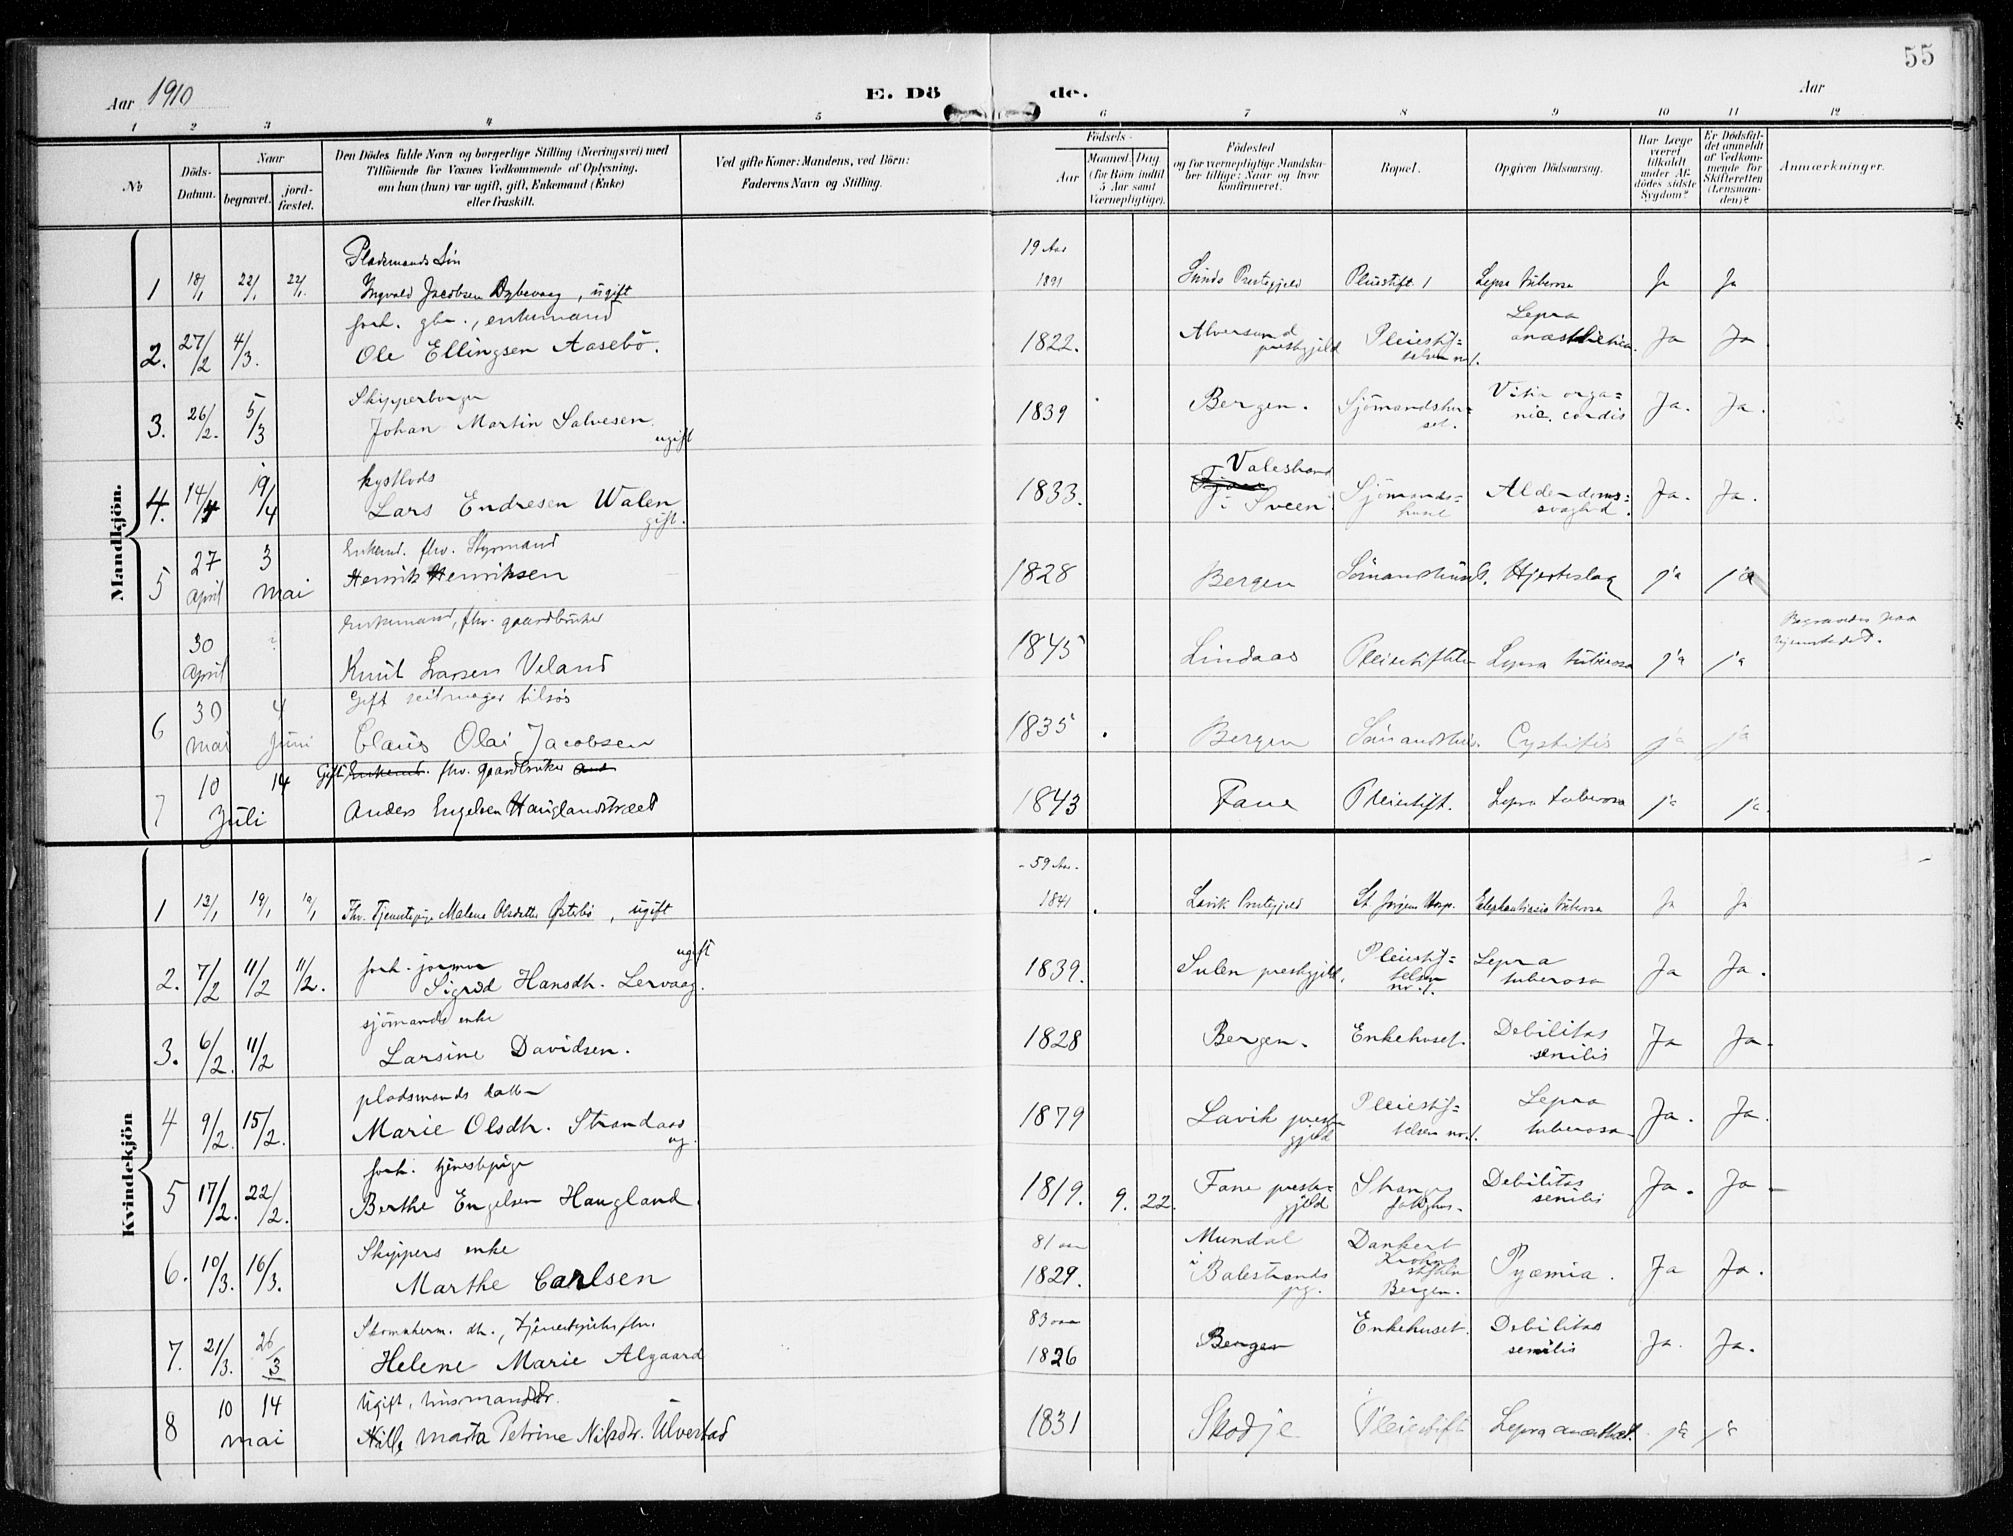 55
Aar 1910
E. Dö de.
Aar
1 2 3 4 5 6 7 8 9 10 11 12
No
Döds-Datum.
Naar
begravet.
jord-fæstet.
Den Dödes fulde Navn og borgerlige Stilling (Næringsvei) med
Tilföiende for Voxnes Vedkommende af Oplysning,
om han (hun) var ugift, gift, Enkemand (Enke)
eller fraskilt.
Ved gifte Koner: Mandens, ved Börn:
Faderens Navn og Stilling.
Födsels-
Aar
Maaned. Dag
(for Börn indtil
5 Aar samt
Værnepligtige).
Födested
og for værnepligtige Mandska-
ber tillige: Naar og hvor
konfirmeret.
Bopæl.
Opgiven Dödsaarsag.
Har Læge
været
tilkaldt
under Af-
dödes sidste
Sygdom?
Er Dödsfal-
det anmeldt
af Vedkom-
mende for
Skifteretten
(Lensman-
den)?
Anmærkninger.
Mandkjön.
Pladsmands Sön 19 Aar
1 18/1 22/1 22/1 Ingvald Jacobsen Dybevaag, ugift 1891 Prestegjeld Pleiestift. 1 Lepra tuberosa Ja Ja
forh. gbr., enkemand Lepra
2. 27/2 4/3. Ole Ellingsen Aasebö. 1822. Alversund prestgjeld Pleiestif=telsen no 1. anæsthetica. Ja Ja.
Skipperborger
3. 26/2. 5/3 Johan Martin Salvesen. ugift 1839 Bergen. Sjömandshu=set. Vitia orga=nic. cordis Ja. Ja.
kystlods Valestrand
4. 14/4 19/4 Lars Endresen Walen gift. 1833. i Sveen. Sjömands=huset Alderdoms=svaghed. Ja. Ja.
Enkemd. fhv. Styrmand
5 27 April 3 mai Henrik Henriksen 1828 Bergen Sömandshuset. Hjerteslag ja ja
Enkemand, fhv. gaardbruker Begravedes paa
30 April ? Knut Larsen Veland 1845 Lindaas Pleiestiftelsen Lepra tuberosa ja ja hjemstedet.
Gift seilmager tilsös
6 30 mai 4 Juni Claus Olai Jacobsen 1835 Bergen Sömandshus. Cystitis ja ja
Gift Enkemd. fhv. gaardbruker And
7 10 14 Juli Anders Engelsen Hauglandstræet 1843 Fane Pleiestift. Lepra tuberosa ja ja.
Kvindekjön
- 59 Aar -
1 13/1 19/1 19/1 Fhv. Tjenestepige Malene Olsdatter Österbö, ugift 1841 Lavik Prestegjeld St Jörgens Hosp. Elephantiasis tuberosa Ja Ja
forh. ugift
2. 7/2 11/2 11/2. Sigrid Hansdtr. Lervaag. 1839. Sulen prestgjeld. Pleiestif=telsen no. 1. Lepra tuberosa Ja Ja.
sjömands enke
3. 6/2. 11/2 Larsine Davidsen. 1828 Bergen. Enkehuset. Debilitas senilis Ja Ja.
pladsmands datter
4 9/2. 15/2. Marie Olsdtr. Strandaas ug. 1879 Lavik prestegjeld Pleiestif=telsen no. 1. Lepra tuberosa. Ja. Ja.
forh. tjenestepige
5 17/2. 22/2. Berthe Engelsen Haugland. 1819. 9. 22. Fane preste=gjeld Stranges fattighus. Debilitas senilis Ja. Ja.
Skippers enke 81 aar Mundal
6. 10/3. 16/3. Marthe Carlsen 1829. i Balestrands pg. Dankert Krohns stiftelse Bergen. Pyæmia. Ja Ja.
Skomakerm. dtr., tjenestepike fhv. 83 aar
7. 21/3. 26/3 Helene Marie Algaard 1826 Bergen Enkehuset. Debilitas senilis Ja. Ja.
Ugift, husmandsdtr.
8 10 14 mai Nille Marta Petrine Nilsdtr. Ulvestad 1831 Skodje Pleiestift. Lepra anæsthet. ja ja